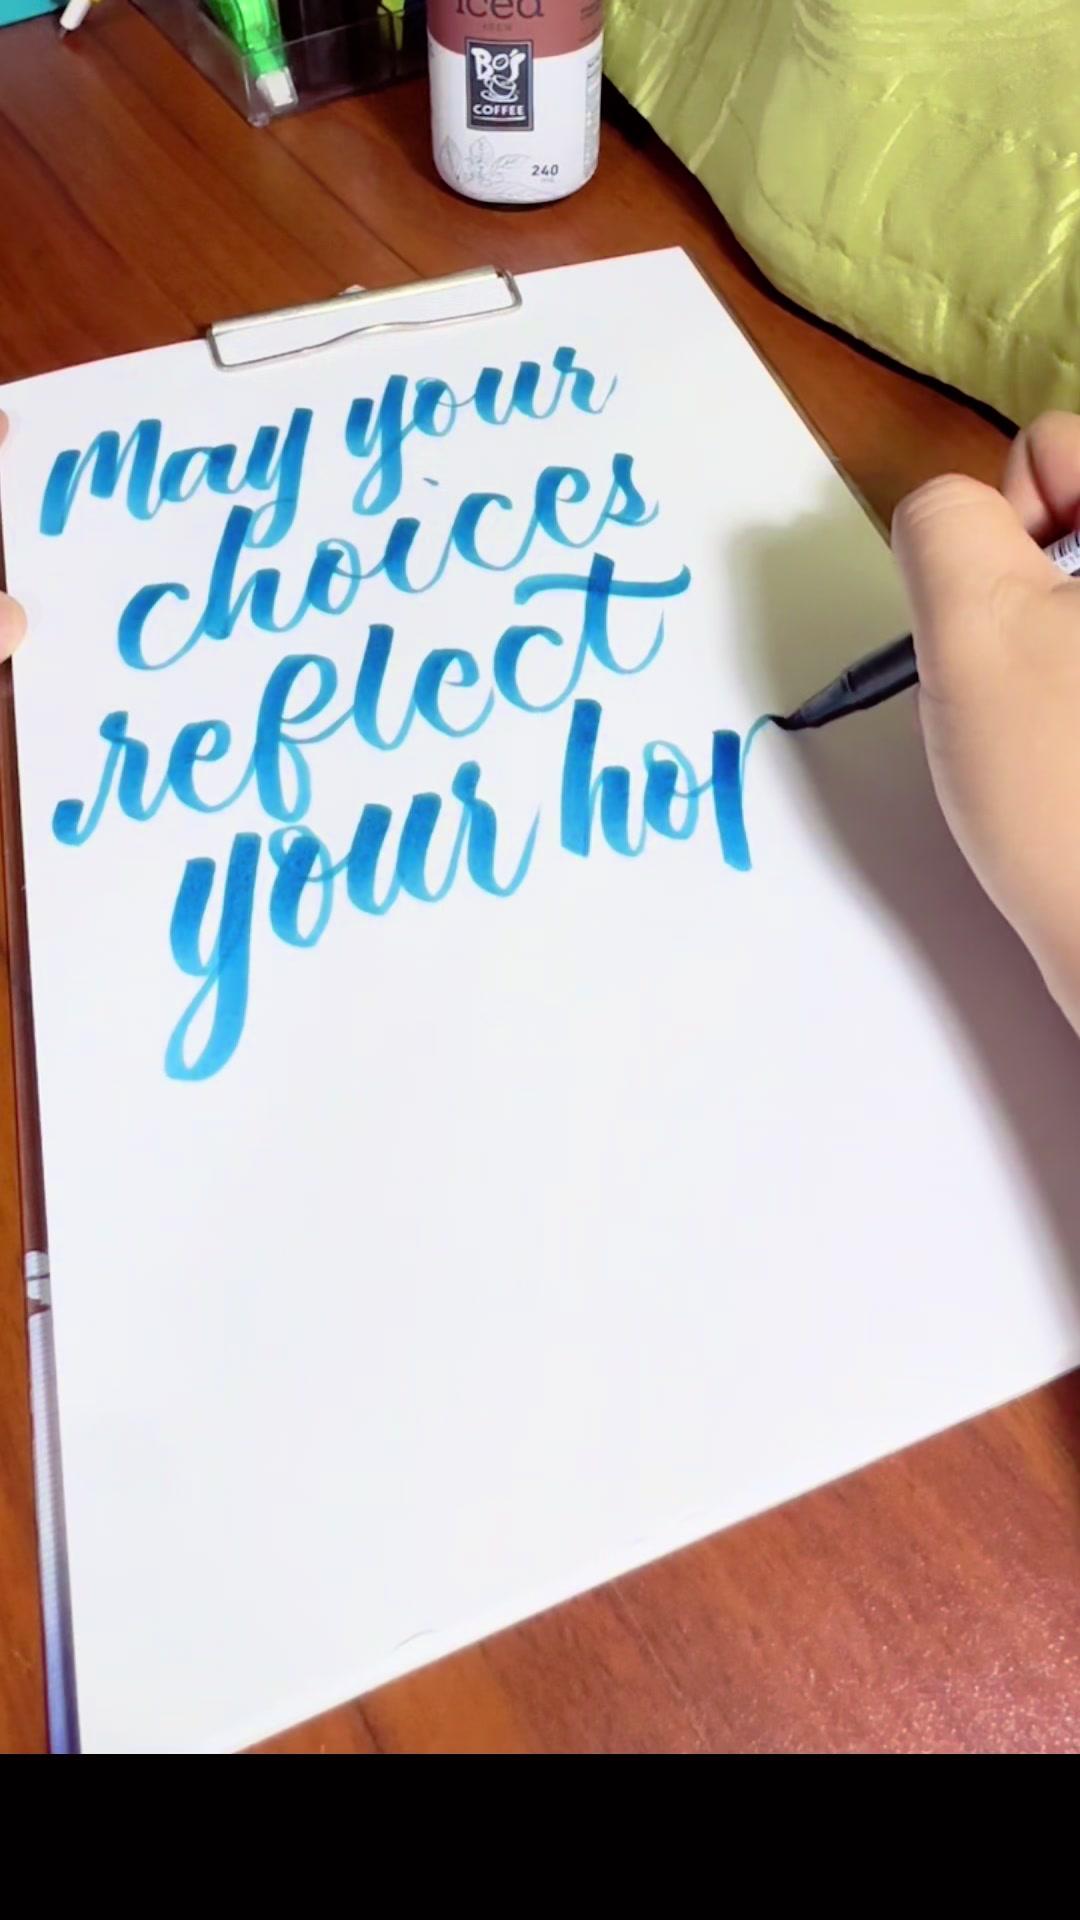 iced
BO'S
COFFEE
240
May your
choices
reflect
your hop